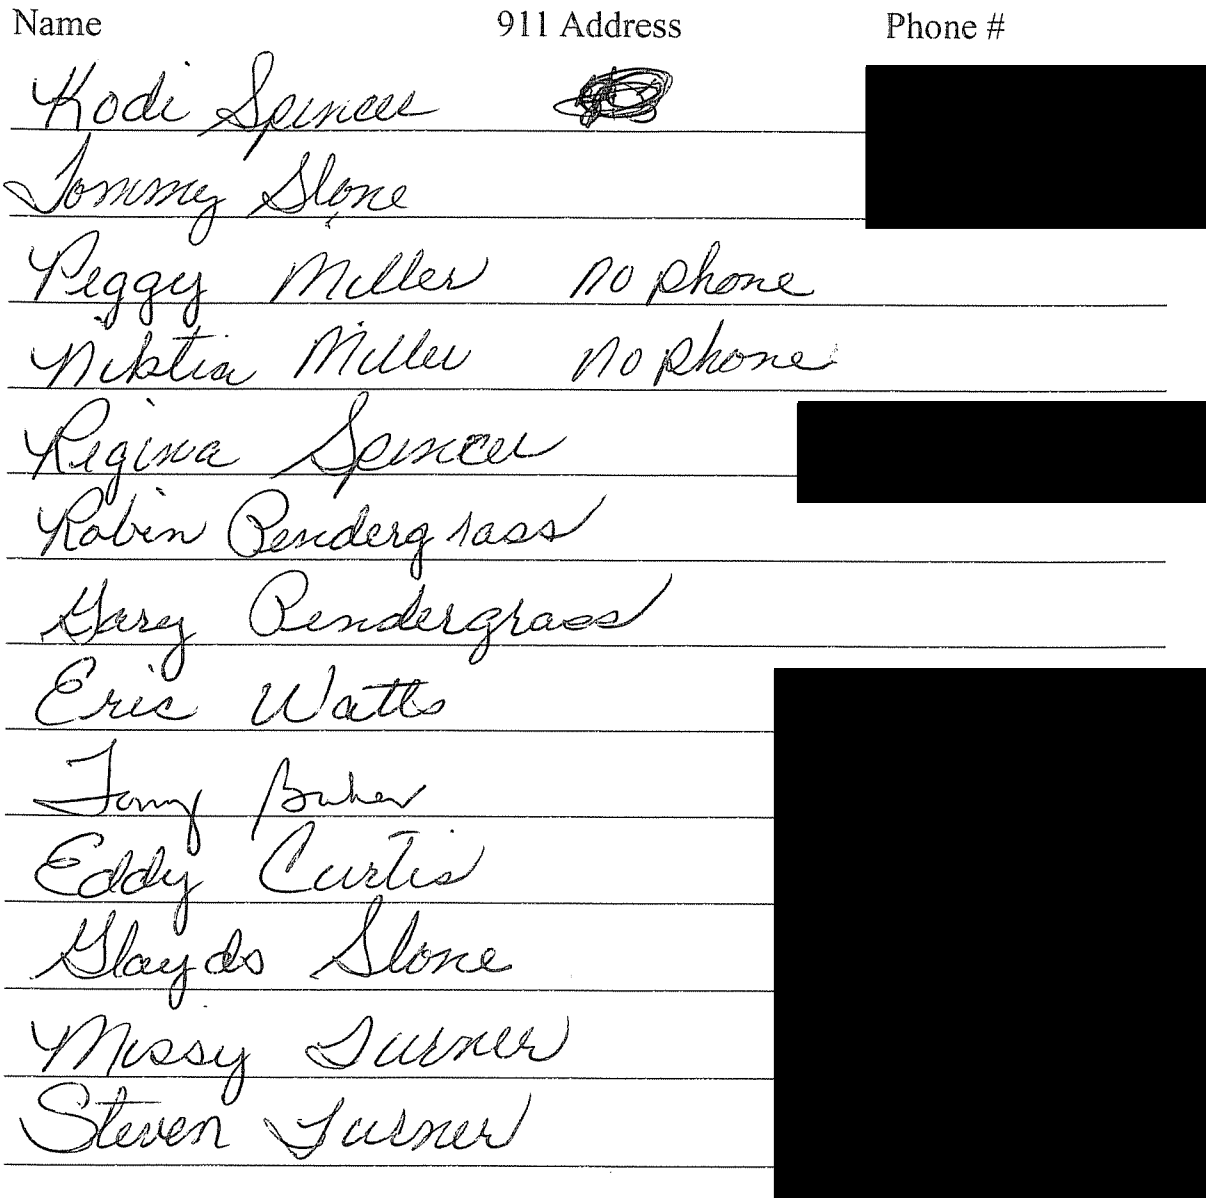 Name 911 Address Phone #
Kodi Spencer
Tommy Slone
Peggy Miller no phone
Niktia Miller no phone
Regina Spencer
Robin Pendergrass
Gary Pendergrass
Eric Watts
Tony Baker
Eddy Curtis
Glayds Slone
Missy Turner
Steven Turner